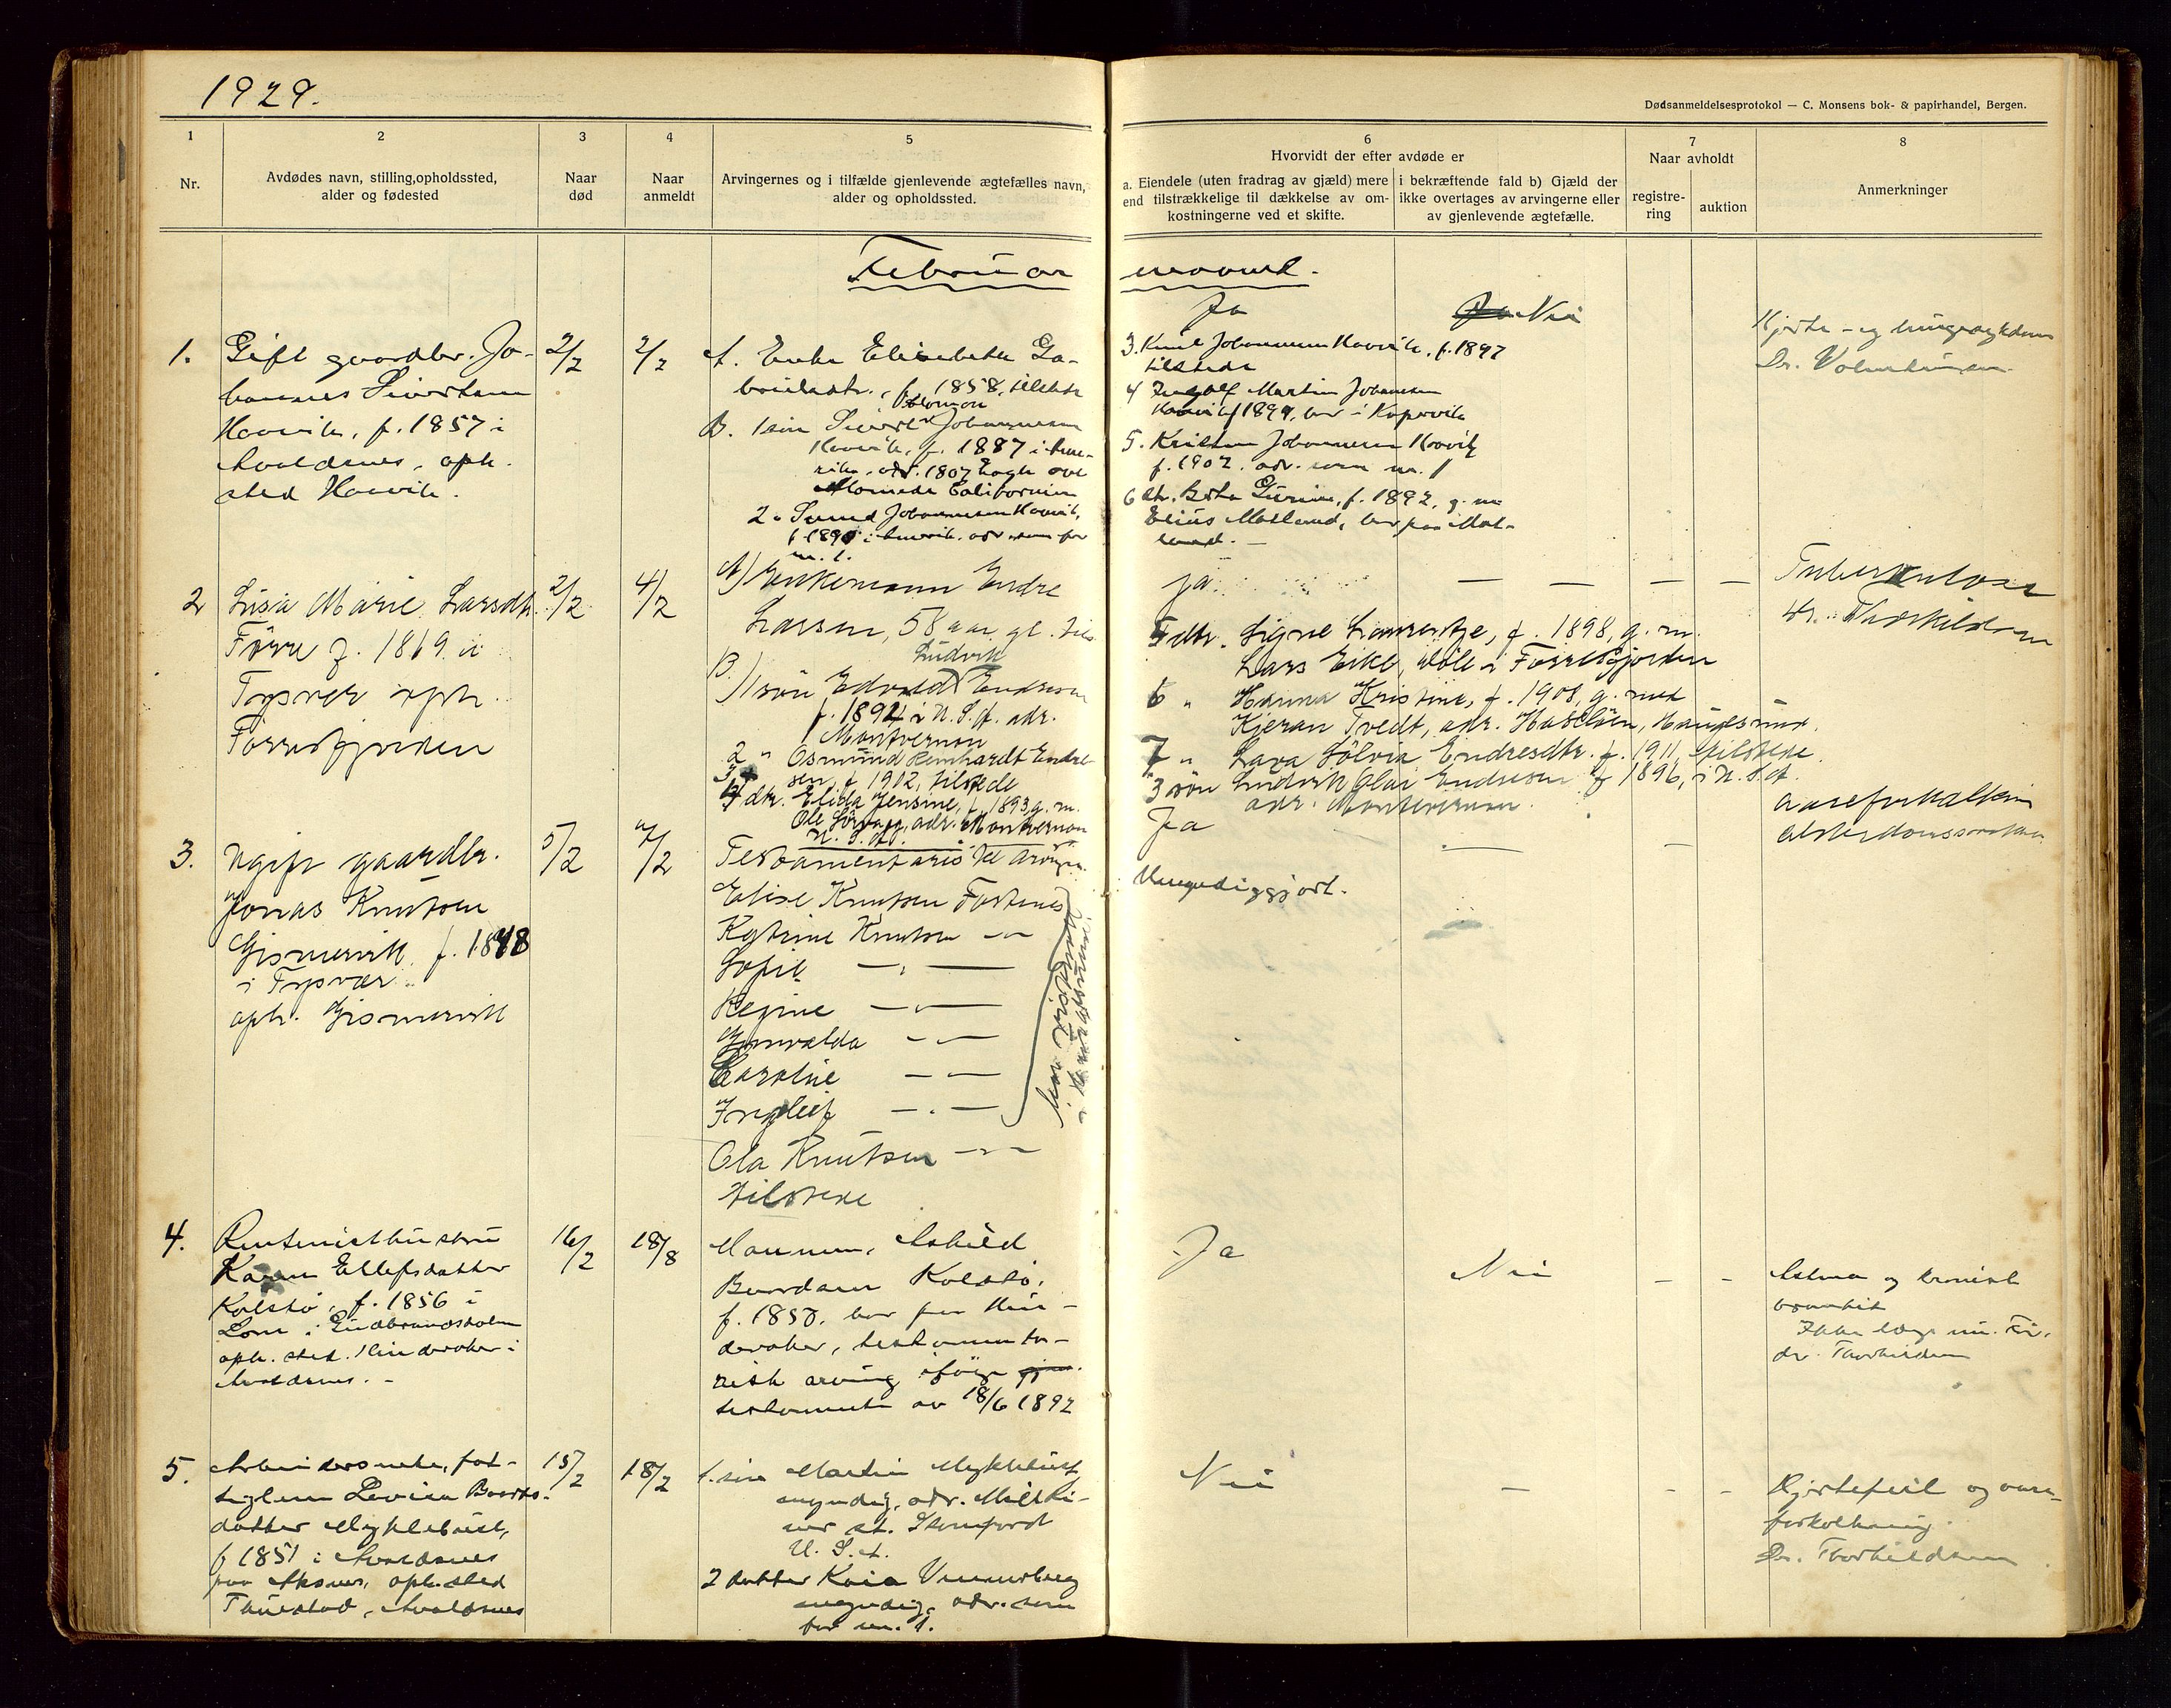 1929.
Dødsanmeldelsesprotokol — C. Monsens bok- & papirhandel, Bergen.
1
2
3
4
5
6
7
8
Nr.
Avdødes navn, stilling, opholdssted,
alder og fødested
Naar
død
Naar
anmeldt
Arvingernes og i tilfælde gjenlevende ægtefælles navn,
alder og opholdssted.
Hvorvidt der efter avdøde er
a. Eiendele (uten fradrag av gjæld) mere
end tilstrækkelige til dækkelse av om-
kostningerne ved et skifte.
i bekræftende fald b) Gjæld der
ikke overtages av arvingerne eller
av gjenlevende ægtefælle.
Naar avholdt
registre-
ring
auktion
Anmerkninger
Februar
1.
Gift gaardbr. Jo-
hannes Sivertsen
Haavik, f. 1857 i
Avaldsnes, oph.
sted Haavik.
2/2
2/2
A. Enke Elisabeth Ga-
brielsdtr., f. 1858, tilstede
Solomon
B. 1 søn Sivert Johannessen
Haavik, f. 1887 i Ame-
rika, adr. 1807 Eagle ave
Alameda Californien
2. Svend Johannessen Haavik,
f. 1890 i Amerik. adr. som for
nr. 1.
Ja
Nei
3. Knut Johannessen Haavik, f. 1897
tilstede
4 Ingolf Martin Johannessen
Haavik f 1899, bor i Kopervik
5. Kristian Johannessen Haavik
f. 1902. adr. som nr. 1
6 dtr. Berta Gurine, f. 1892, g. m.
Elius Matland, bor paa Mat-
land. —
Hjerte- og lungesykdom
Dr.
2
Lisa Marie Larsdtr.
Førre f. 1869 i
Tysvær oph.
Førresfjorden
2/2
4/2
A) Enkemann Endre
Larsen, 58 aar gl. tils
Ludvik
B.) 1 søn Edvard Endresen
f. 1894 i U.S.A. adr.
Montvernon
2 " Osmund Reinhardt Endre-
sen, f 1902, tilstede
4 dtr. Elida Jensine, f. 1893 g. m.
Ole adr. Montvernon
U. S. A.
ja
— — — —
5 dtr. Signe Laurentze, f. 1898, g. m.
Lars Eike, Døle i Førresfjorden
6 " Hanna Kristine, f. 1908, g. med
Kjeran Tvedt, adr. Hasseløen, Haugesund.
7 " Lava Sølvia Endresdtr. f. 1911, tilstede.
3 søn Ludvik Olai Endresen f 1896, i U.S.A.
adr. Montvernon.
Tuberkulose
dr. Thorkildsen
3.
Ugift gaardbr.
Jonas Knutsen
Gismervik f. 1848
i Tysvær
oph. Gismervik
5/2
7/2
Testamentariske arvinger
Elise Knutsen Fosenes
Katrine Knutsen — " —
Sofie — " —
Regine — " —
— " —
Caroline — " —
Ingleif — " —
Ola Knutsen — " —
tilstede
Ja
Uangudiggjort.
— —
aareforkalkning
alderdomssvakhet
4.
Rentenisthustru
Karen Ellefsdatter
Kolstø, f. 1856 i
Lom i Gudbrandsdalen
oph. sted. Hinderaker i
Avaldsnes. —
16/2
18/8
Mannen, Askild
Baardsen Kolstø,
f. 1850, bor paa Hin-
deraker, testamenta-
risk arving ifølge
testamente av 18/6 1892
Ja
Nei
— —
Astma og kronisk
bronkit
Ikke læge
dr. Thorkildsen
5.
Arbeiderenke, fat-
tiglem Lovisa Baards-
datter Myklebust,
f 1851 i Avaldsnes
paa Aksnes, oph. sted
Tuestad, Avaldsnes
15/2
18/2
1. søn Martin Myklebust,
myndig, adr.
st. Stanford
U. S. A.
2 datter Kaia Vinnesberg
myndig, adr. som
for nr. 1.
Nei
— — —
Hjertefeil og aare-
forkalkning
Dr. Thorkildsen